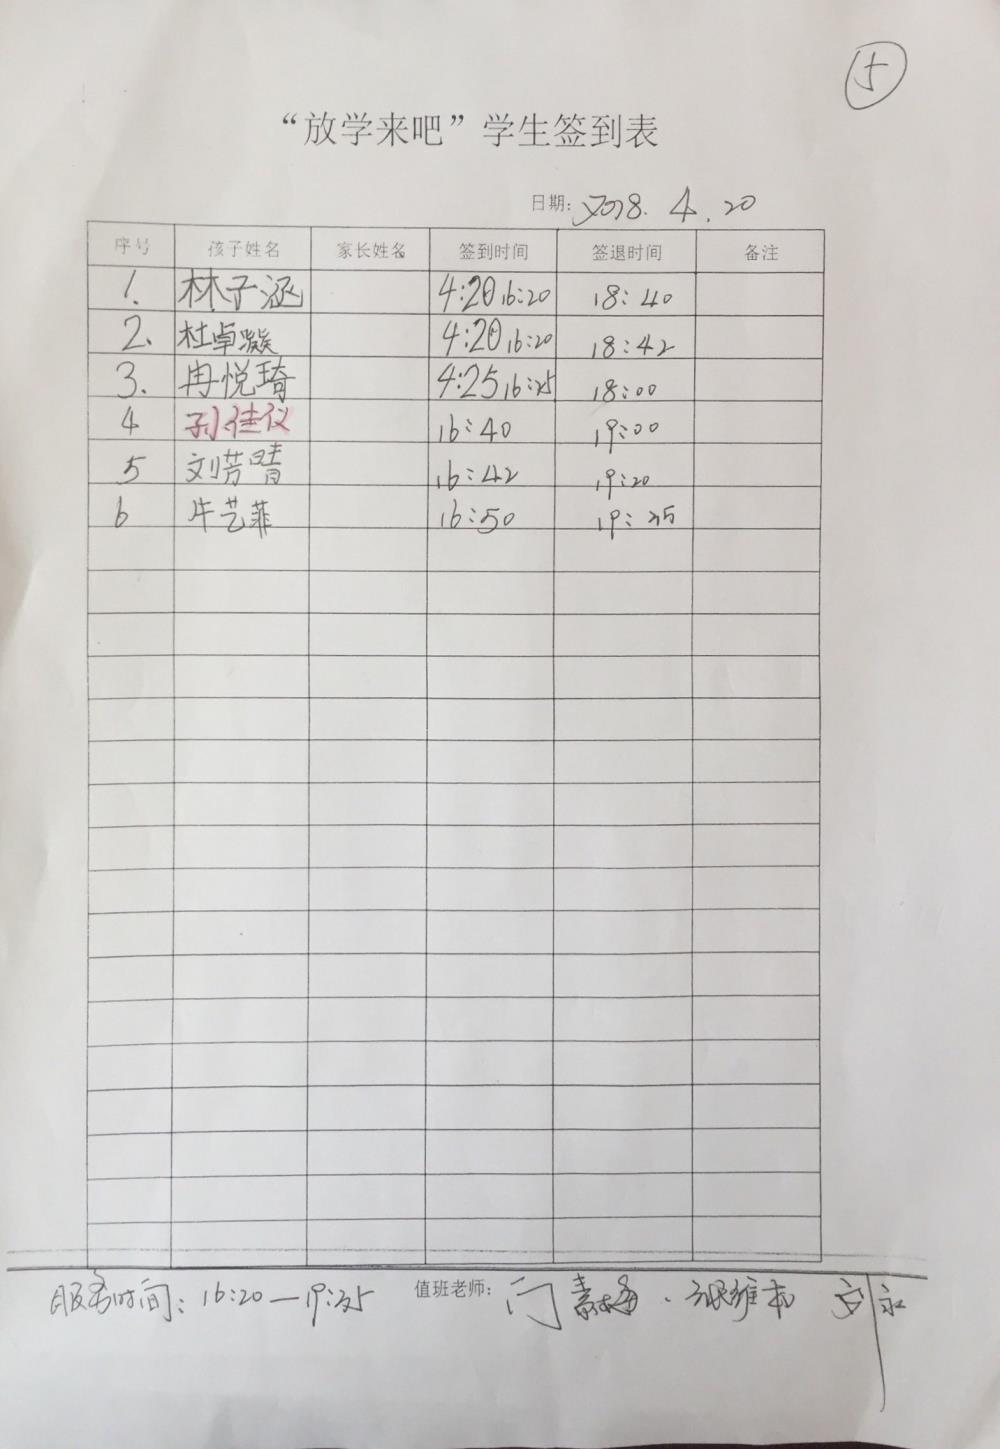 5
“放学来吧”学生签到表
日期: 2018. 4. 20
序号 孩子姓名 家长姓名 签到时间 签退时间 备注
1. 林子涵 4:20 16:20 18:40
2. 杜卓凝 4:20 16:20 18:42
3. 冉悦琦 4:25 16:25 18:00
4 孙佳仪 16:40 19:00
5 刘芳晴 16:42 19:20
6 牛艺菲 16:50 19:35
服务时间: 16:20—19:35 值班老师: 闫素梅 . 张维布 刘永